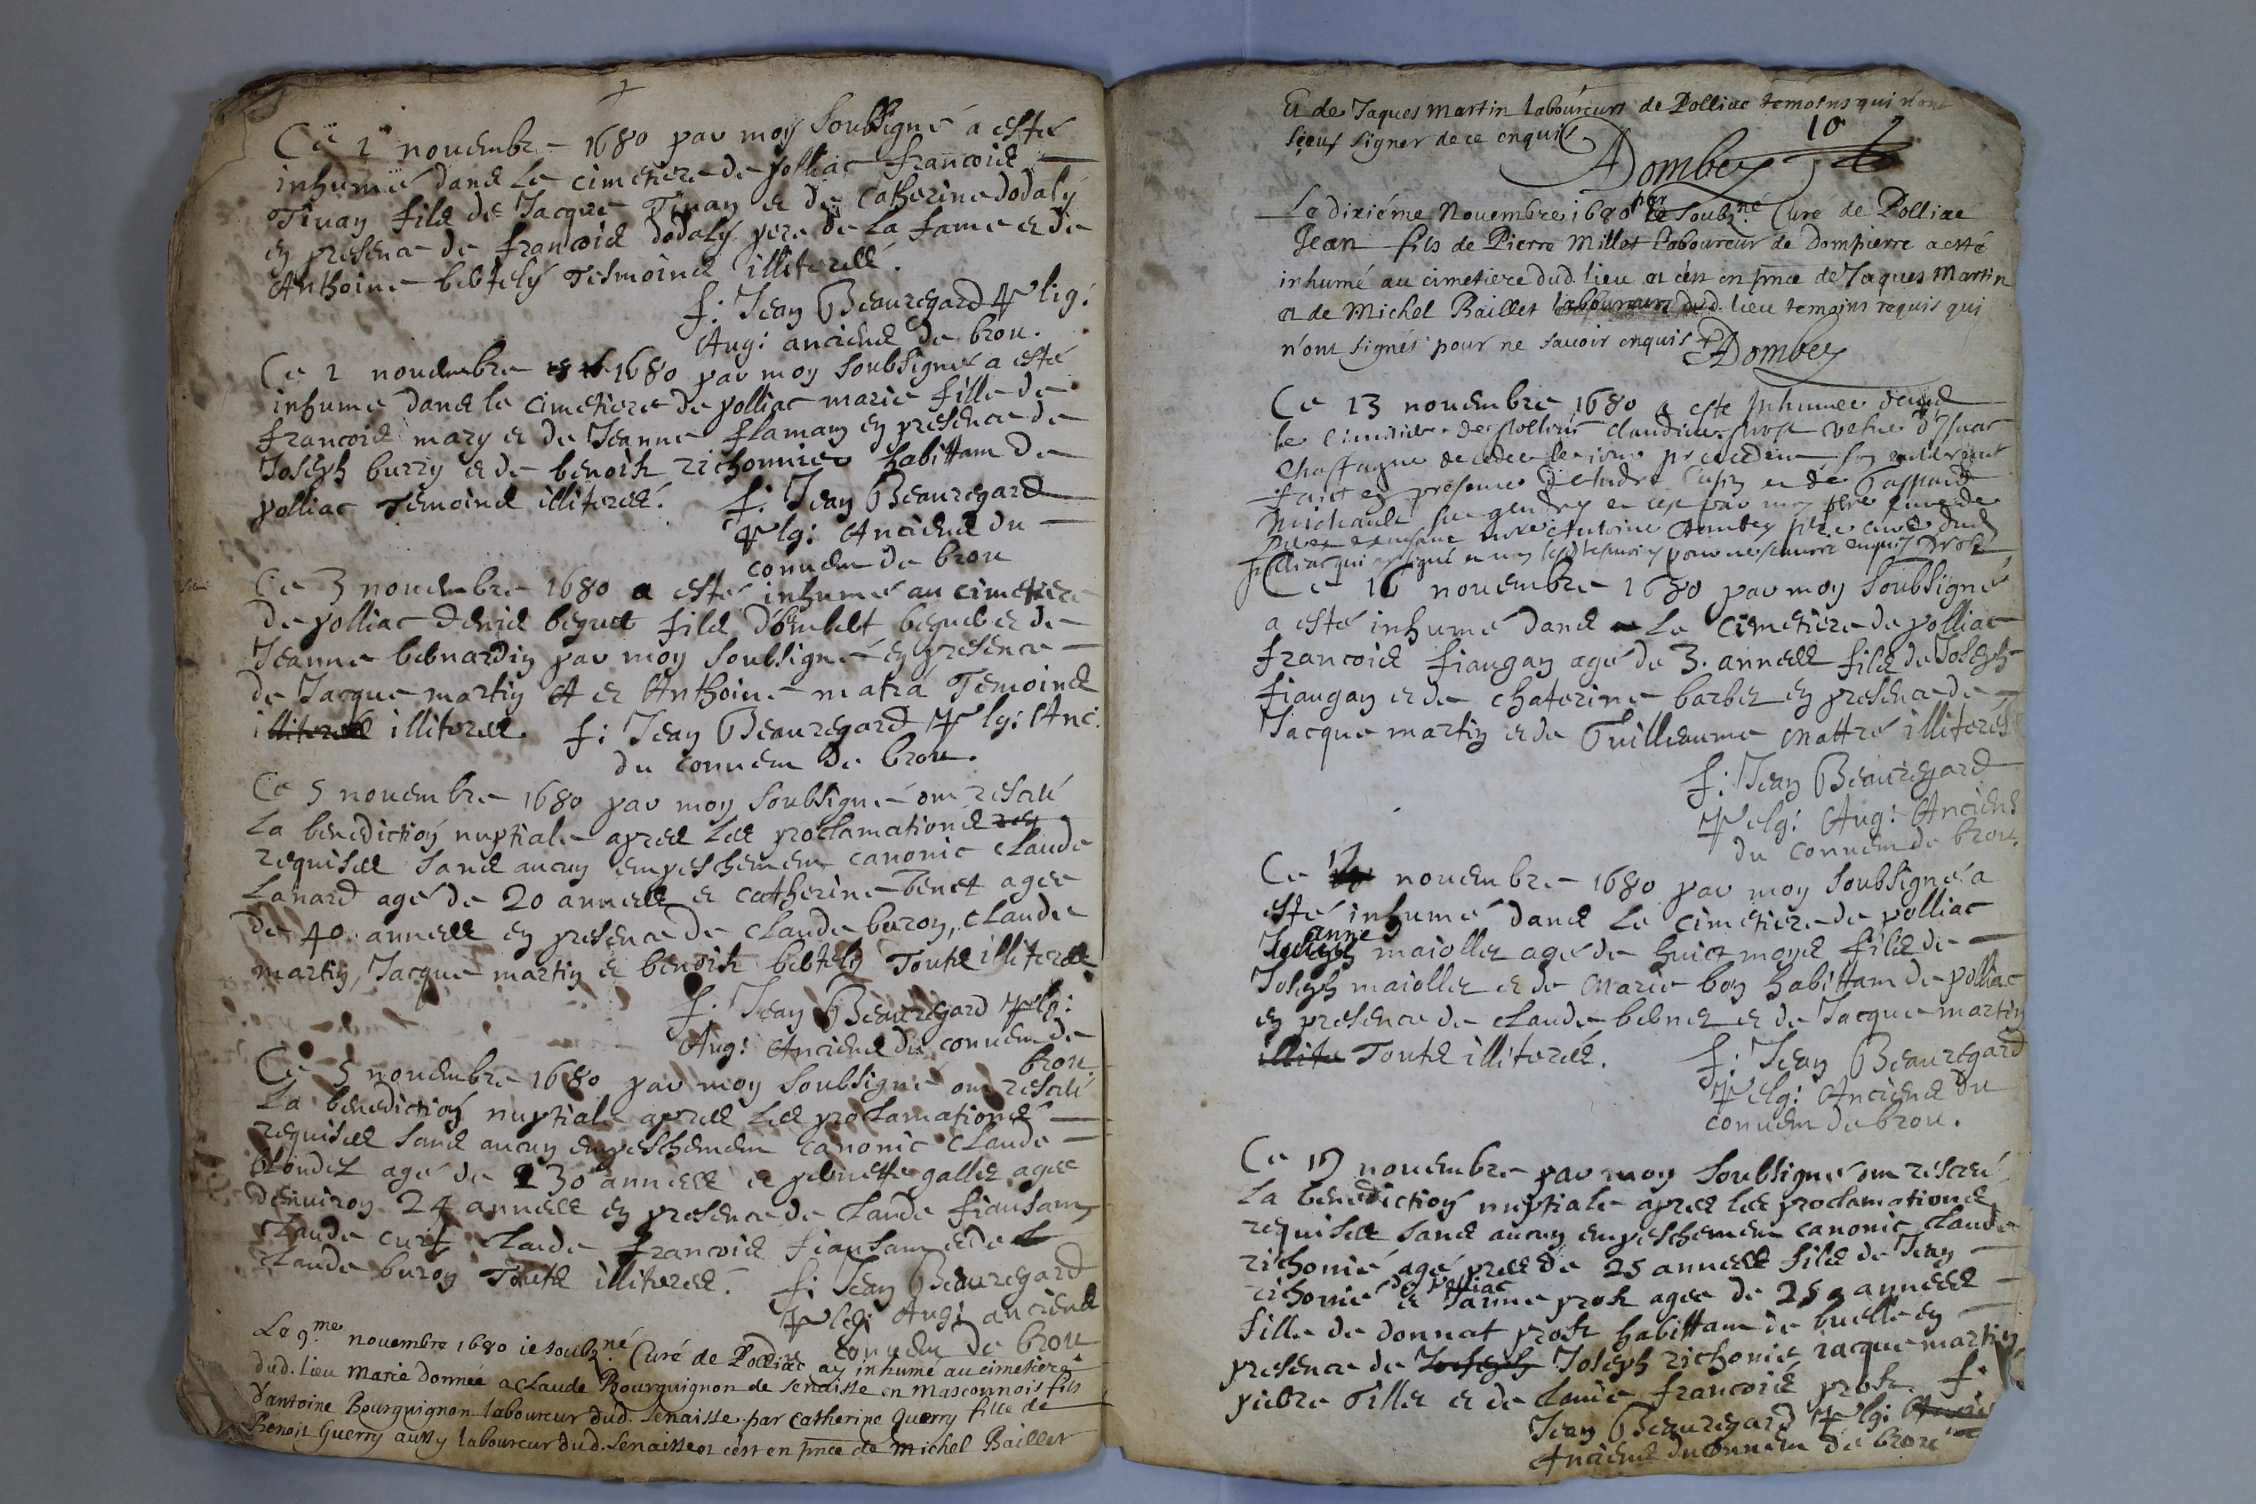 Ce 2 nouembre 1680 par moy soubsigné a esté
inhumé dans le cimetiere de polliac francois
Tiuan fils de Jacque Tiuan et de Catherine dodaly
en presence de francois dodaly pere de la fame et de
Anthoine bebtely tesmoins illiterés.
f: Jean Beauregard Relig:
Aug: anciens de brou.
Ce 2 nouembre 1680 par moy soubsigné a esté
inhumé dans le cimetiere de polliac marie fille de
francois mary et de Jeanne flaman en presence de
Joseph burry et de benoist richonnier habittam de
polliac temoins illiterés.
f. Jean Beauregard
Relg: Anciens du
conuem de brou
Ce 3 nouembre 1680 a esté inhumé au cimetiere
de polliac denis beguet fils d'emblet beguet et de
Jeanne bebnardin par moy soubsigné en presence
de Jacque martin et Anthoine matra Temoins
illiterés illiterés. f: Jean Beauregard Relg: Anc.
du conuem de brou.
Ce 5 nouembre 1680 par moy soubsigné om reseu
la benediction nuptiale apres les proclamations
requises sans aucun empeschemem canonic claude
Lanard agé de 20 annees et catherine benet agee
de 40 annees en presence de claude buron, claude
martin, Jacque martin et benoist bebtely Touts illiterés
f. Jean Beauregard Relg:
Aug: Anciens du conuem de
brou.
Ce 5 nouembre 1680 par moy soubsigné om reseu
la benediction nuptiale apres les proclamations
requises sans aucun empeschemem canonic claude
blondet agé de 30 annees et pebnette gallet agee
denuiron 24 annees en presence de claude fiansam
claude curt claude francois fiansam et de
claude buron Touts illiterés. f: Jean Beauregard
Relg: Aug: anciens
du conuem de brou
Le 9.me nouembre 1680 ie soubz.né Curé de Polliac ay inhumé au cimetiere
dud. lieu Marie donnée a Claude Bourguignon de senaisse en Masconnois fils
d'antoine Bourguignon laboureur dud. Senaisse par Catherine Guerry fille de
Benoit Guerry aussy laboureur dud. Senaisse et c'est en pnce de Michel Baillet
Et de Jaques Martin laboureurs de Polliac temoins qui n'ont
sceus signer de ce enquis
10
Dombey
Le dixiéme Nouembre 1680 par le soubz.né Curé de Polliac
Jean fils de Pierre Millet laboureur de Dompierre a esté
inhumé au cimetiere dud. lieu et c'est en pnce de Jaques Martin
et de Michel Baillet laboureurs dud. lieu temoins requis qui
n'ont signés pour ne sauoir enquis
Dombey
Ce 13 nouembre 1680 a este Inhumee dans
le cimitiere de polliac claudine prost vefue d'Isaac
Chaffagne decedee le iour precedem son enterremt
faict en presence d'Andre Cusin et de Gaspard
Michault
Ce 16 nouembre 1680 par moy soubsigné
a esté inhumé dans le cimetiere de polliac
francois fiaugan agé de 3. annees fils de Joseph
fiaugan et de chaterine barbet en presence de
Jacque martin et de Guilleaume mattré illiterés
f: Jean Beauregard
Relg: Aug: Anciens
du conuem de brou.
Ce 17 nouembre 1680 par moy soubsigné a
esté inhumé dans le cimetiere de polliac
anne
maiollet agé de huict moys fils de
Joseph maiollet et de Marie bon habittam de polliac
en presence de claude bebnet et de Jacque martin
Touts illiterés.
f: Jean Beauregard
Relg: Anciens du
conuem de brou.
Ce 19 nouembre par moy soubsigné om reseu
la benediction nuptiale apres les proclamations
requises sans aucun empeschemem canonic claude
richonié agé pres de 25 annees fils de Jean
de polliac
richonié et Janne prost agee de 25 annees
fille de donnat prost habittam de buelle en
presence de Joseph richonié Jacque martin
piebre Tillet et de claude francois prost. f.
Jean Beauregard Relg:
Anciens du conuem de brou